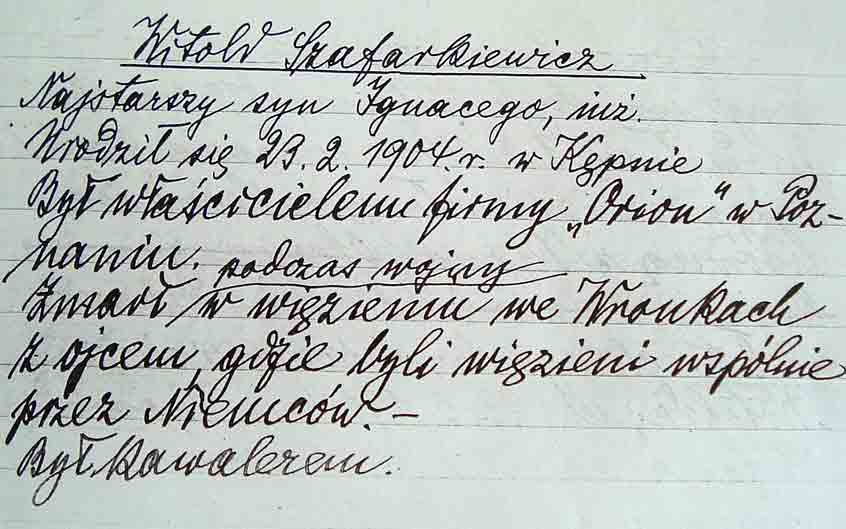 Witold Szafarkiewicz
Najstarszy syn Ignacego, inż.
Urodził się 23.2.1904.r. w Kępnie
Był właścicielem firmy „Orion" w Poz-
naniu.
podczas wojny
Zmarł w więzieniu we Wronkach
z ojcem, gdzie byli więzieni wspólnie
przez Niemców. –
Był kawalerem.